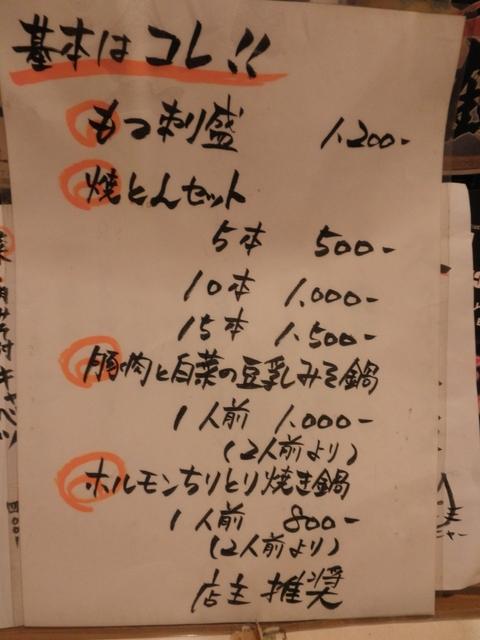 基本はコレ!!
もつ刺り盛 1,200-
焼とんセット
5本 500-
10本 1,000-
15本 1,500-
豚肉と白菜の豆乳しみそ鍋
1人前 1,000-
(2人前より)
ホルモンちりとり焼き鍋
1人前 800-
(2人前より)
店主推奨
キャベツ